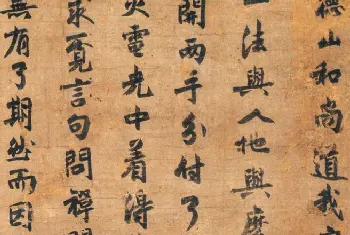 德山和尚道我
一法與人他與麼
開兩手分付了
火電光中着得
求覓言句問禪
無有了期然而因